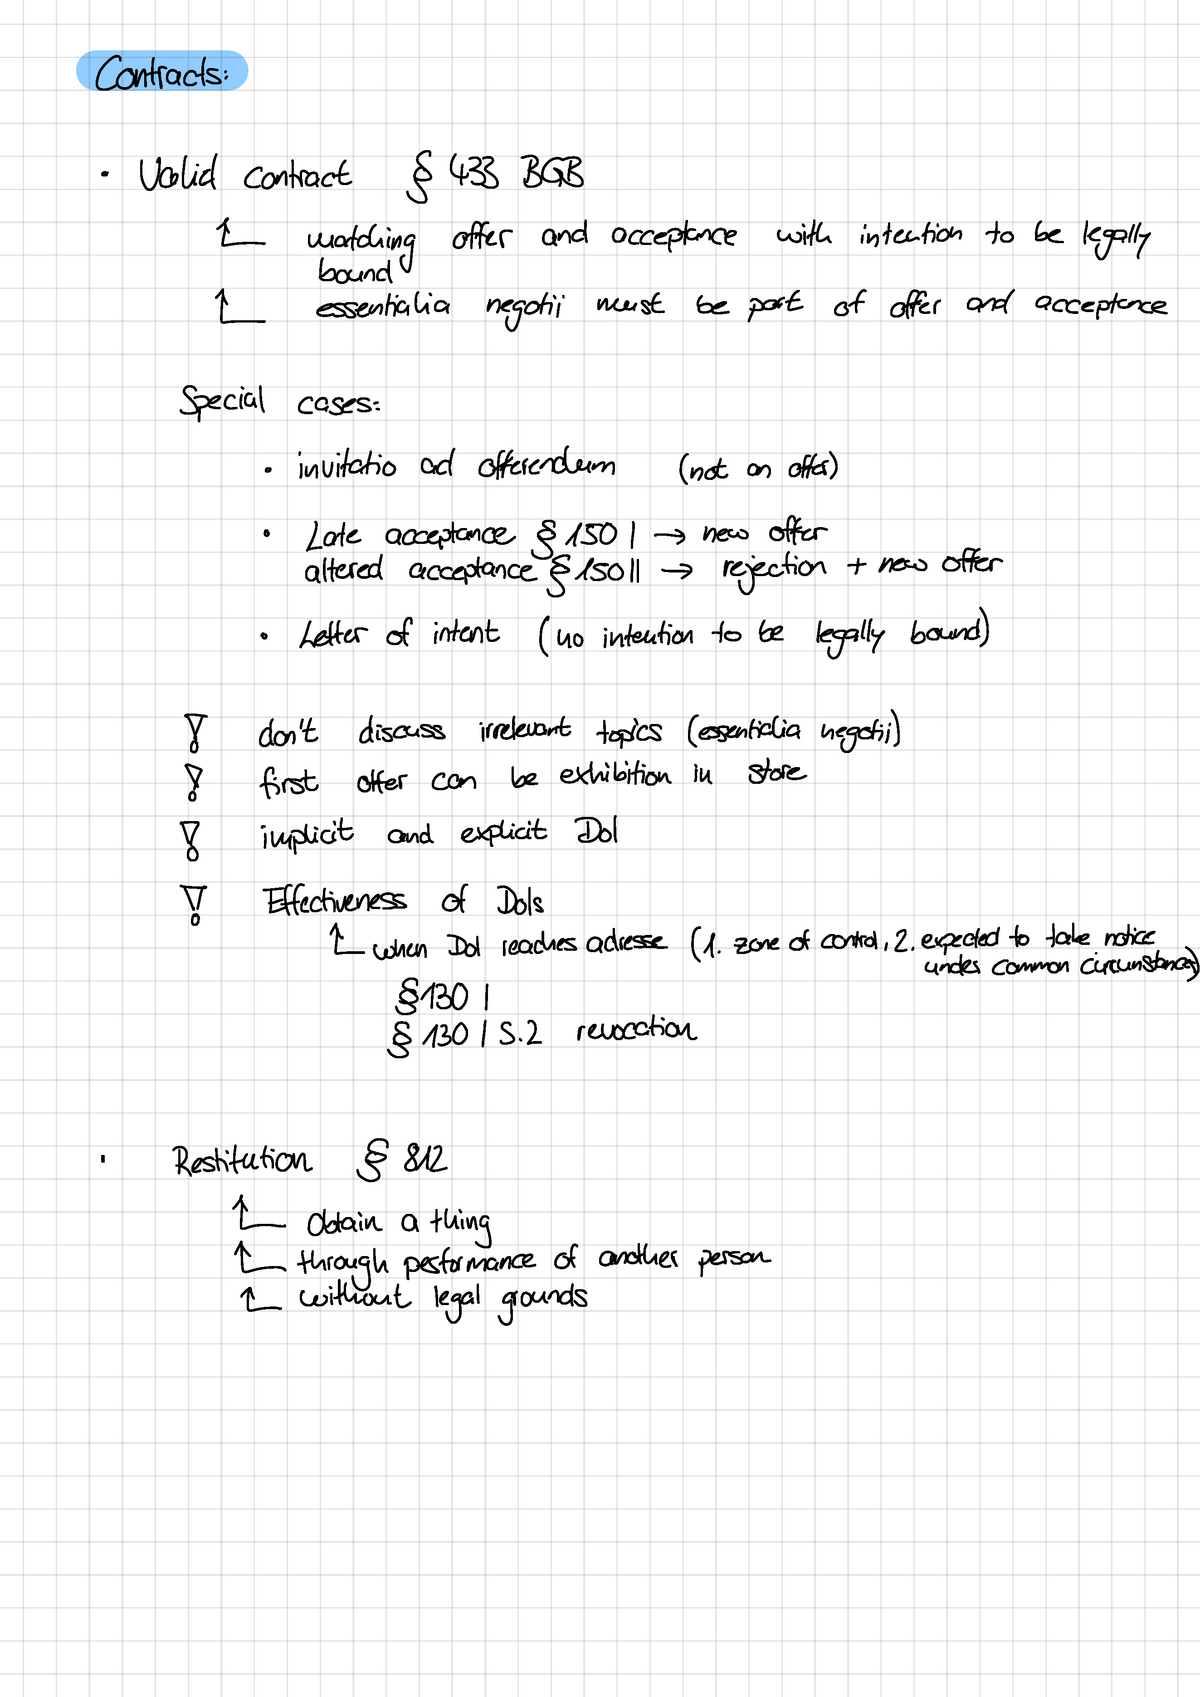 Contracts:
• Valid contract § 433 BGB
matching offer and acceptance with intention to be legally
bound
essentialia negotii must be part of offer and acceptance
Special cases:
• invitatio ad offerendum (not an offer)
• Late acceptance § 150 I → new offer
altered acceptance § 150 II → rejection + new offer
• Letter of intent (no intention to be legally bound)
! don't discuss irrelevant topics (essentialia negotii)
! first offer can be exhibition in store
! implicit and explicit DoI
! Effectiveness of DoIs
when DoI reaches adresse (1. zone of control, 2. expected to take notice
under common circumstances)
§ 130 I
§ 130 I S.2 revocation
• Restitution § 812
obtain a thing
through performance of another person
without legal grounds